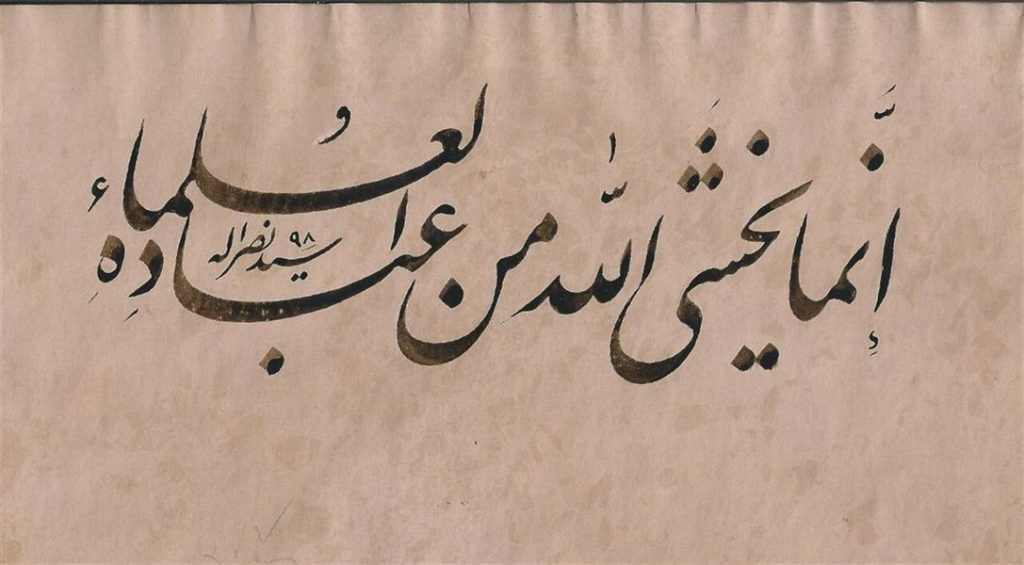 إنَّما يخشَى اللّٰه من عبادهِ العلماءُ
سید نصراله ۹۸